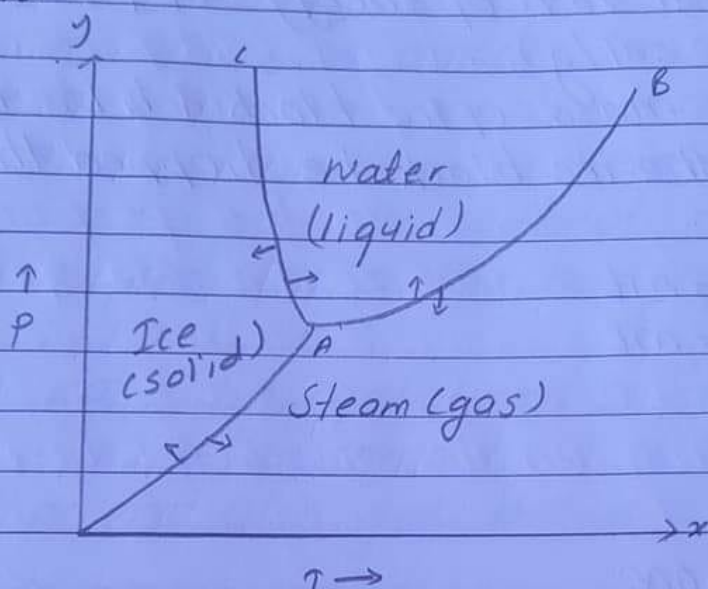 y
C
B
water
(liquid)
↑
P
Ice
(solid)
A
Steam (gas)
x
T →